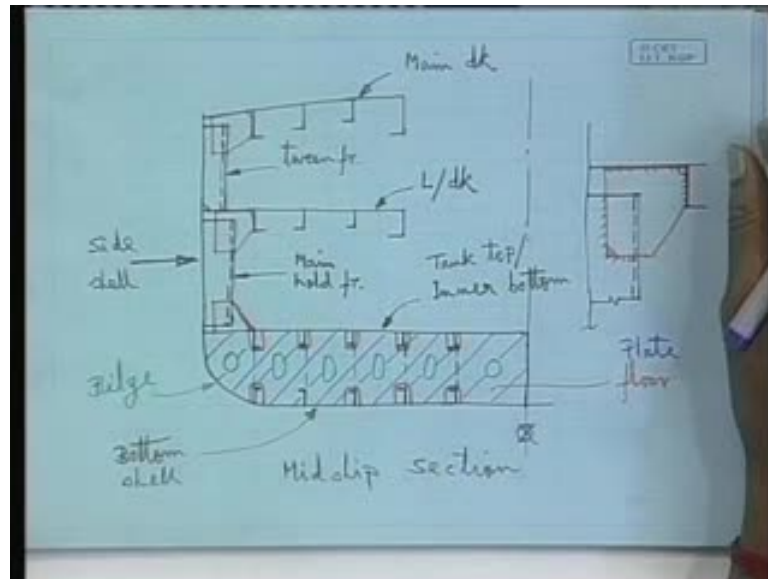 Main dk
tween fr.
L/dk
side
shell
Main
hold fr.
Tank top/
Inner bottom
Plate
floor
Bilge
Bottom
shell
Midship section